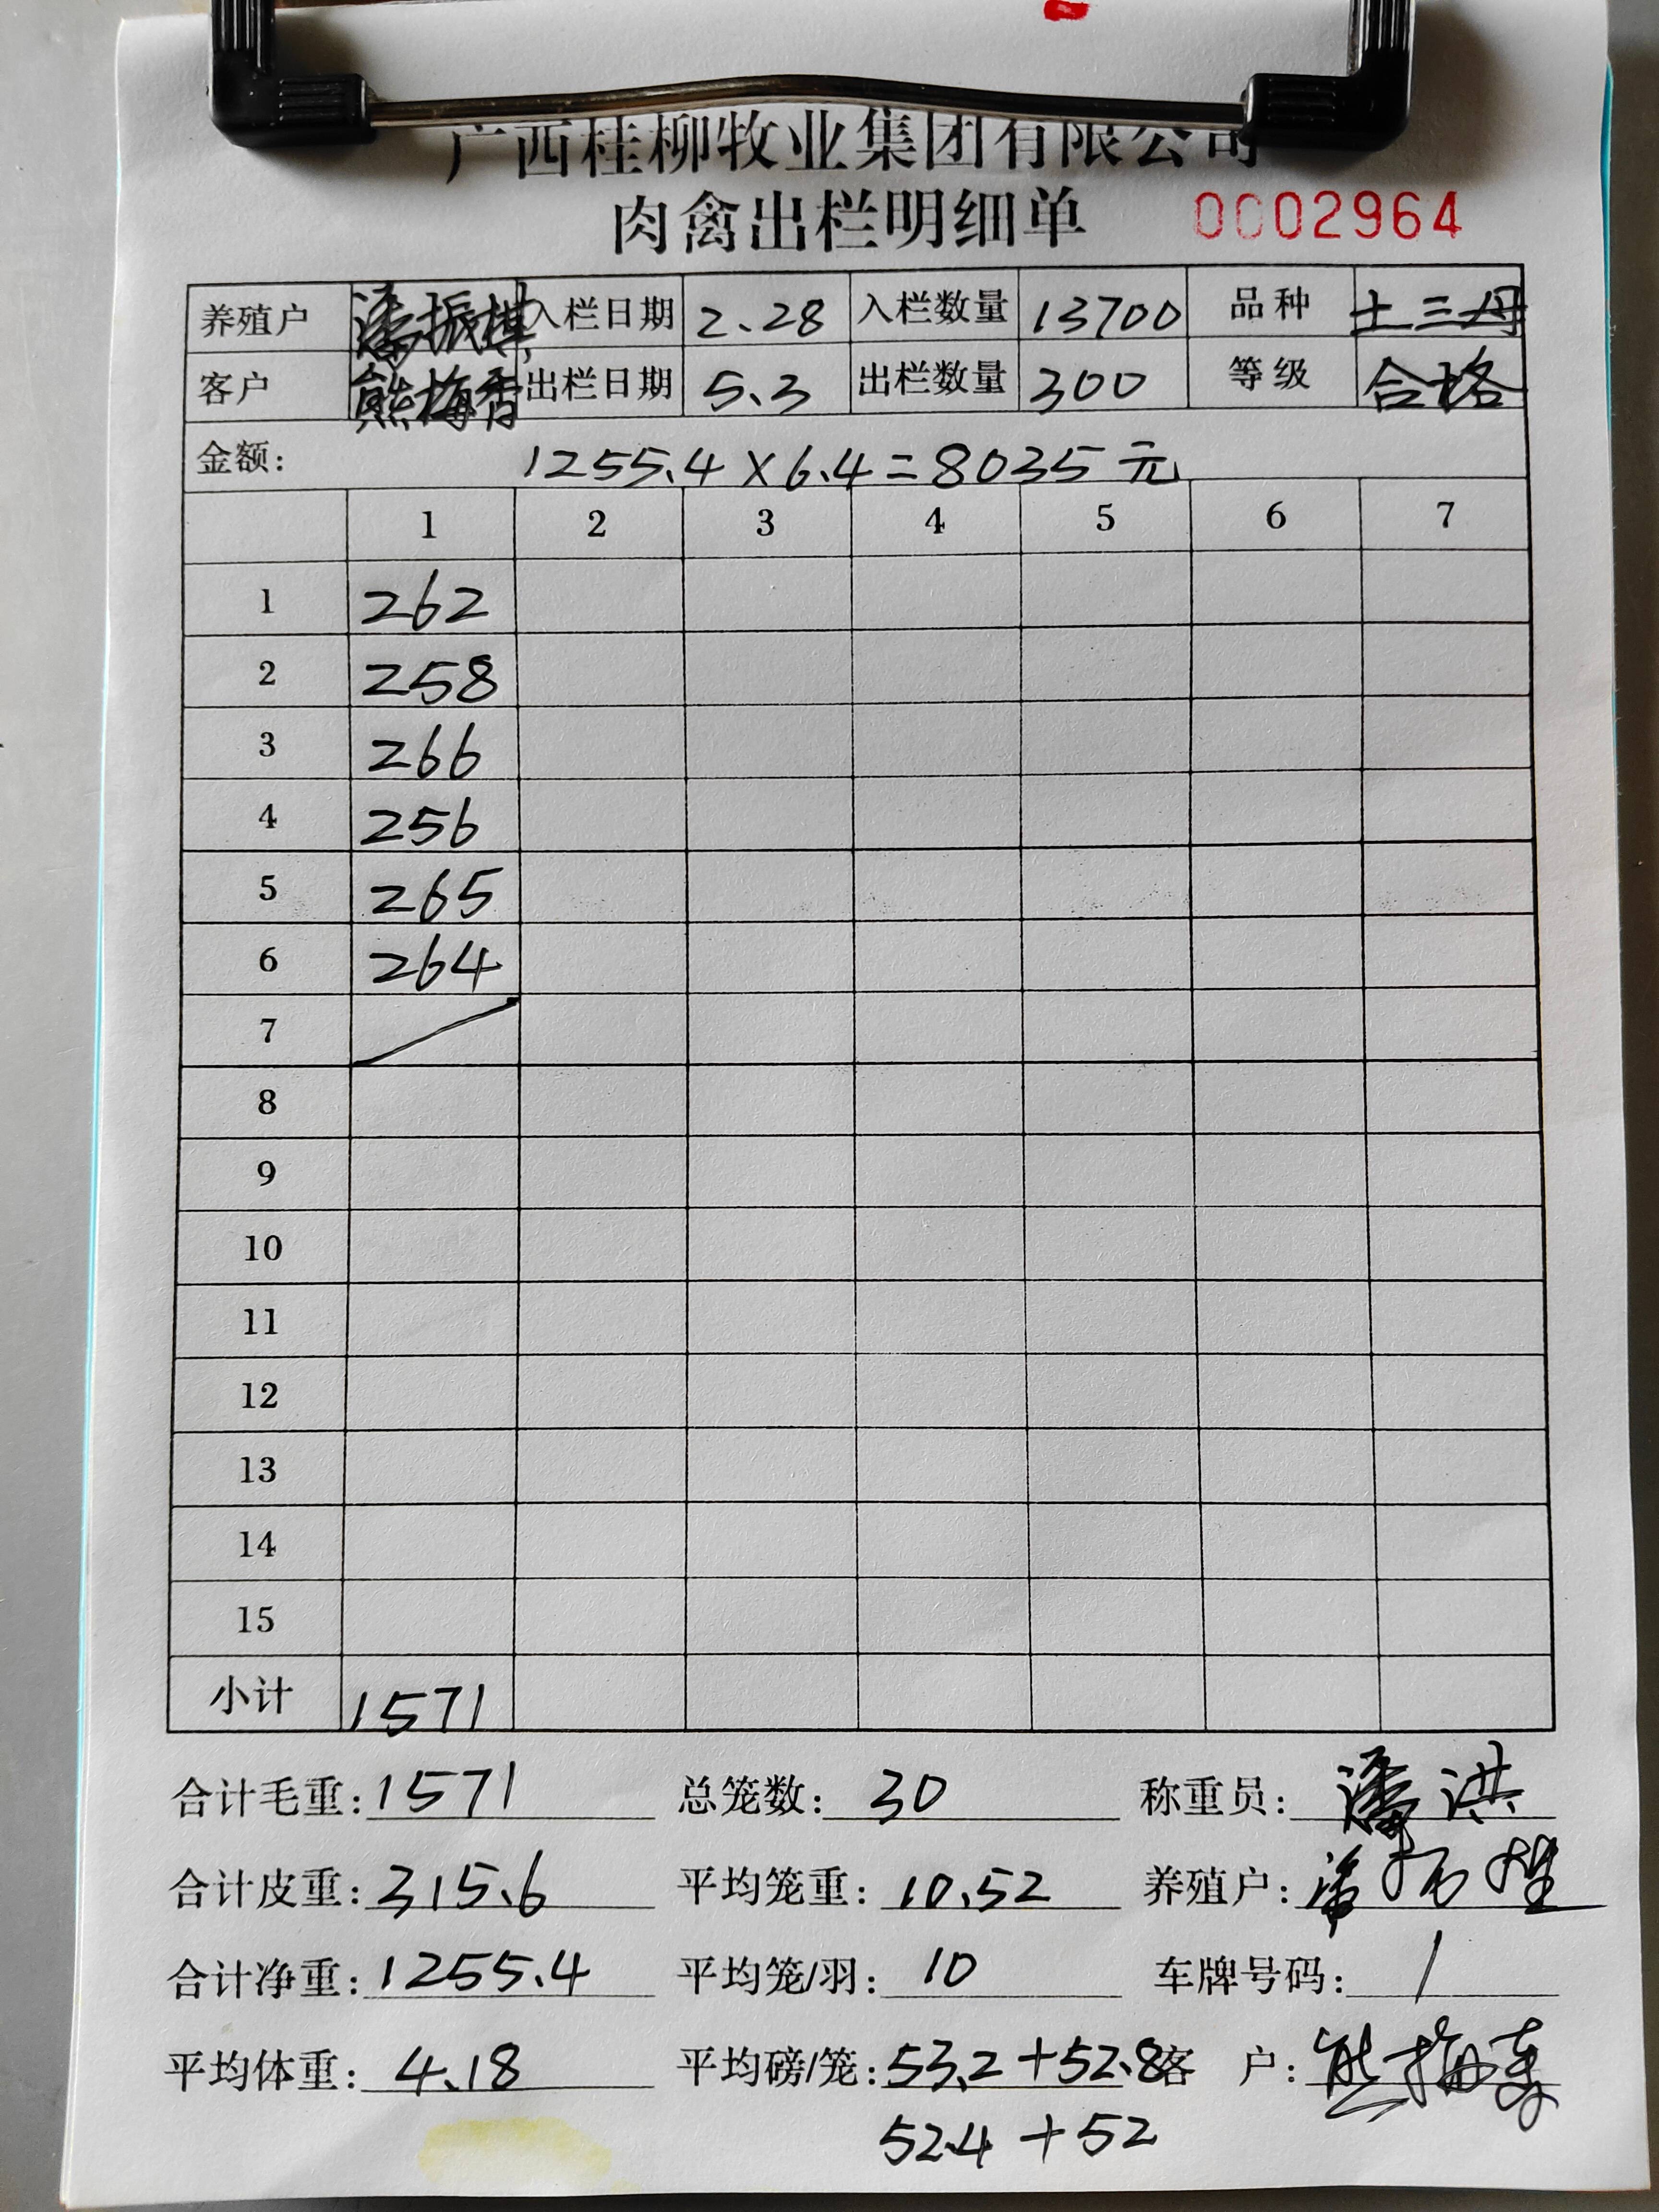 广西桂柳牧业集团有限公司
肉禽出栏明细单 0002964
养殖户 潘振棋 入栏日期 2.28 入栏数量 13700 品种 土三丹
客户 熊梅香 出栏日期 5.3 出栏数量 300 等级 合格
金额: 1255.4×6.4=8035元
1 2 3 4 5 6 7
1 262
2 258
3 266
4 256
5 265
6 264
7
8
9
10
11
12
13
14
15
小计 1571
合计毛重: 1571 总笼数: 30 称重员: 潘洪
合计皮重: 315.6 平均笼重: 10.52 养殖户:
合计净重: 1255.4 平均笼/羽: 10 车牌号码: /
平均体重: 4.18 平均磅/笼: 53.2+52.8 客 户: 熊梅香
52.4+52